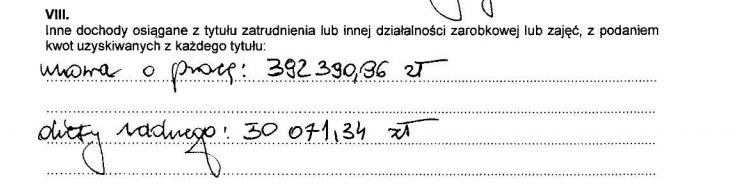 VIII.
Inne dochody osiągane z tytułu zatrudnienia lub innej działalności zarobkowej lub zajęć, z podaniem
kwot uzyskiwanych z każdego tytułu:
umowa o pracę: 392 390,96 zł
diety radnego: 30 071,34 zł